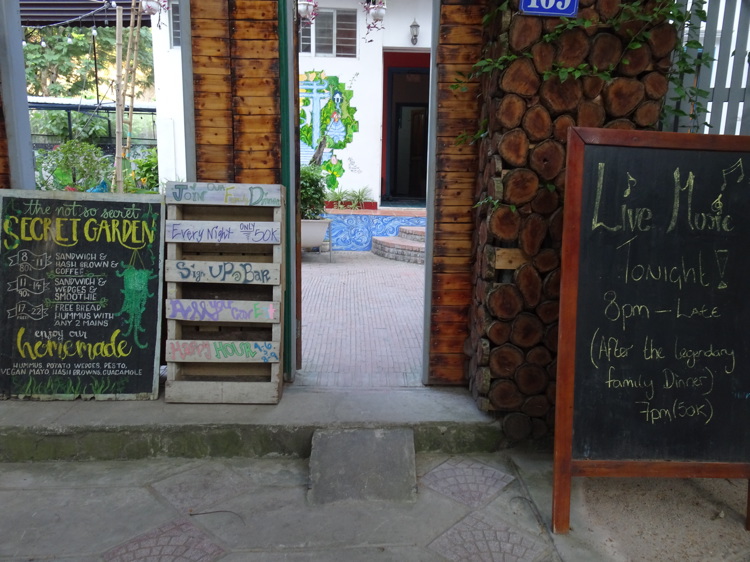 109
the not so secret
SECRET GARDEN
8 - 11
SANDWICH &
HASH BROWN &
COFFEE
11 - 14
SANDWICH &
WEDGES &
SMOOTHIE
17 - 22
FREE BREAD
HUMMUS WITH
ANY 2 MAINS
enjoy our
homemade
HUMMUS, POTATO WEDGES, PESTO,
VEGAN MAYO, HASH BROWNS, GUACAMOLE
JOIN OUR Family Dinner
Every Night ONLY 50K
Sign UP @ Bar
All you can Eat
HAPPY HOUR
Live Music
Tonight!
8pm - Late
(After the legendary
family Dinner)
7pm (50K)